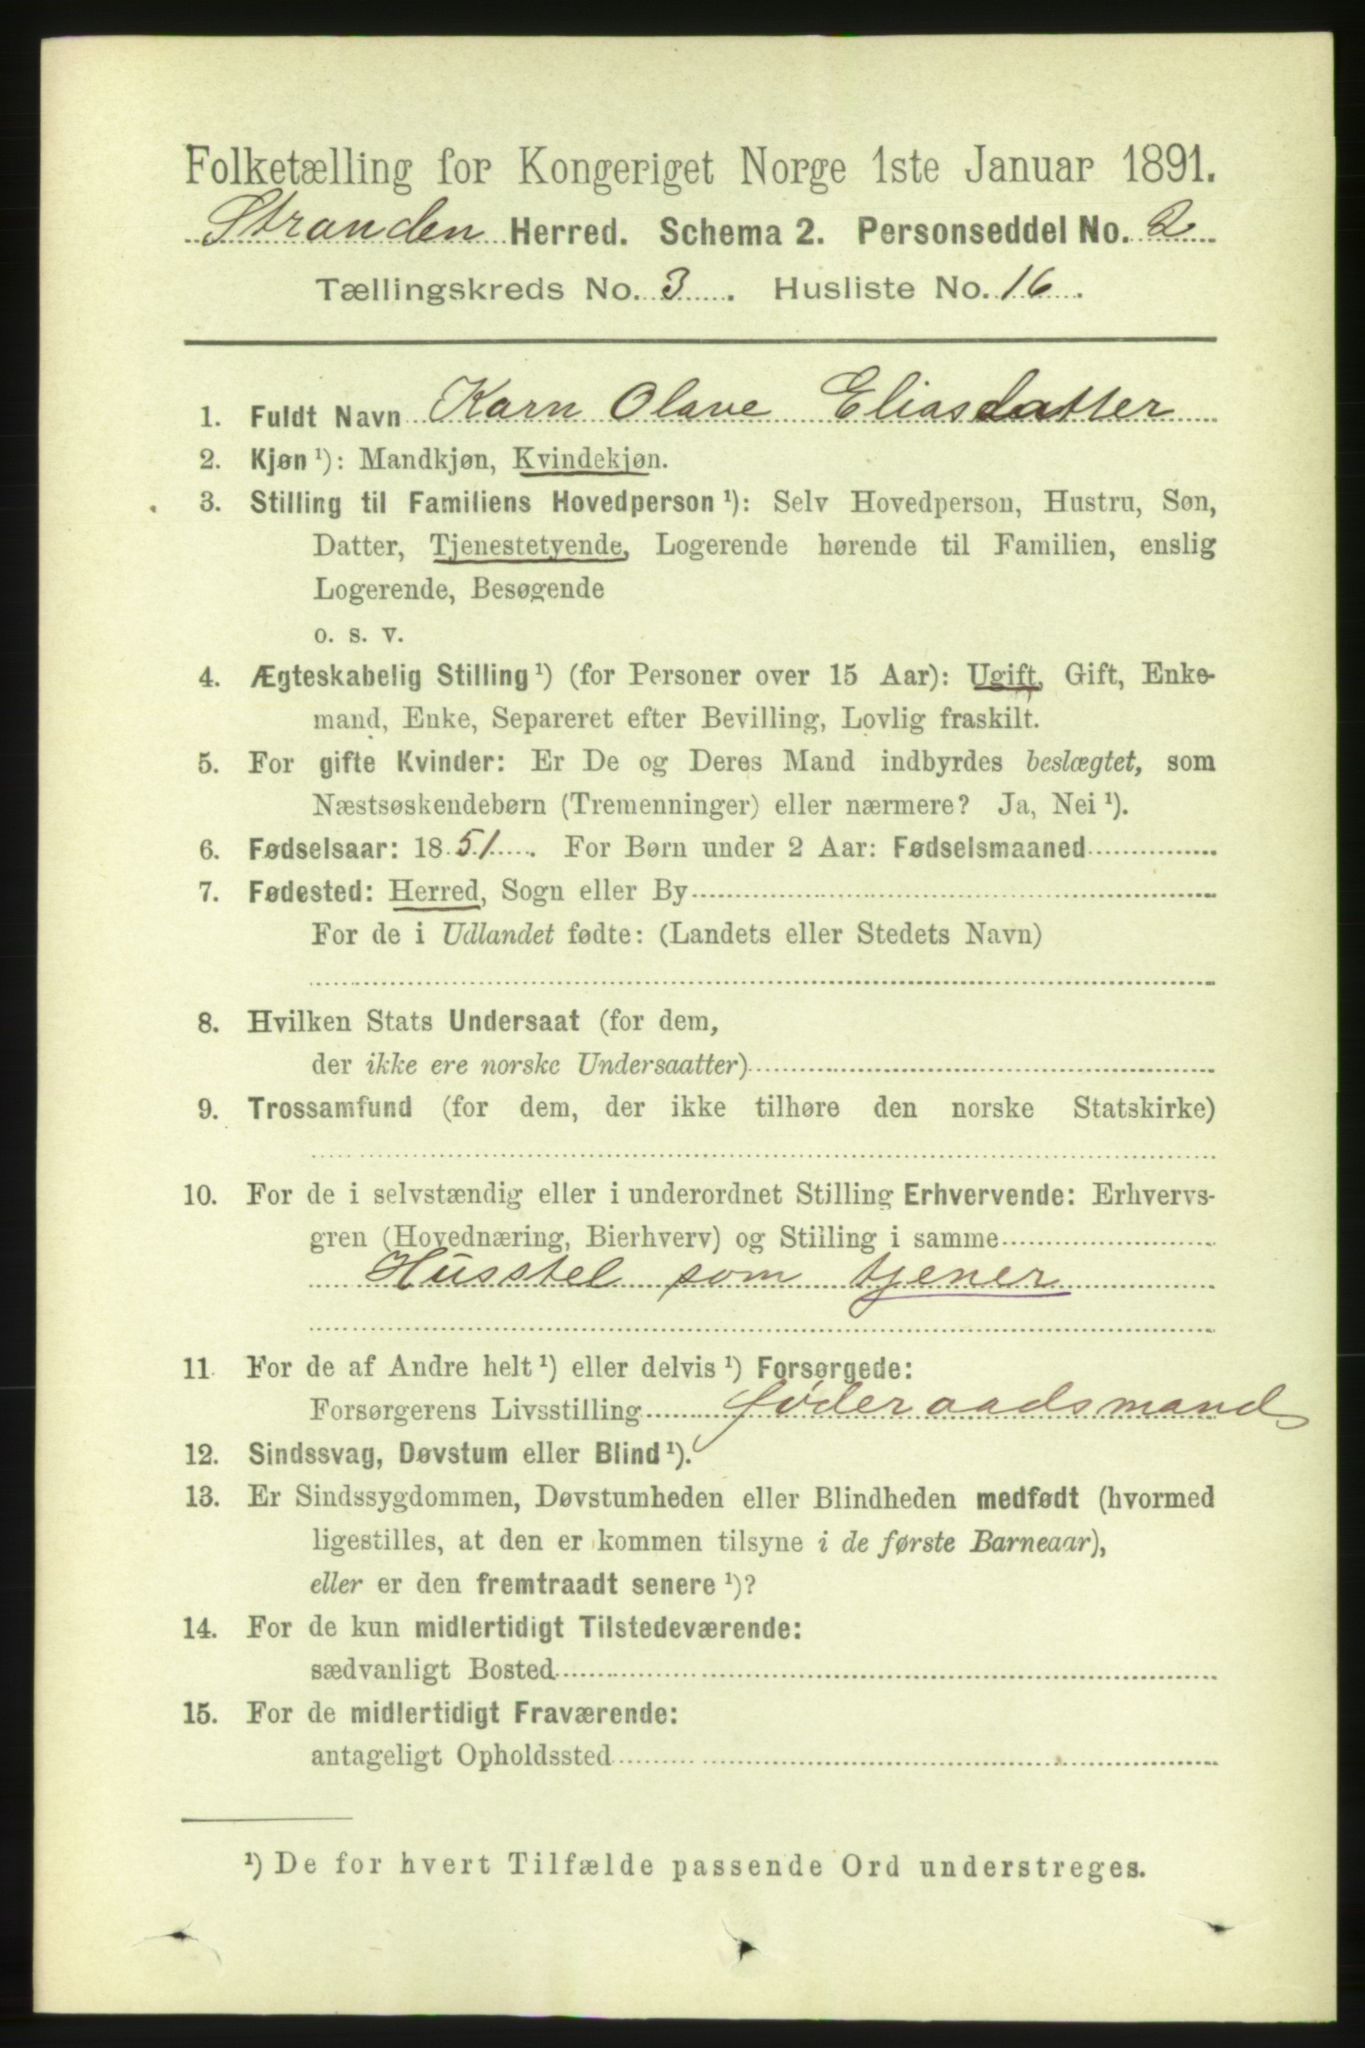 Folketælling for Kongeriget Norge 1ste Januar 1891.
Stranden Herred. Schema 2. Personseddel No. 2
Tællingskreds No. 3. Husliste No. 16.
1. Fuldt Navn Karn Olave Eliasdatter
2. Kjøn ¹): Mandkjøn, Kvindekjøn.
3. Stilling til Familiens Hovedperson ¹): Selv Hovedperson, Hustru, Søn,
Datter, Tjenestetyende, Logerende hørende til Familien, enslig
Logerende, Besøgende
o. s. v.
4. Ægteskabelig Stilling ¹) (for Personer over 15 Aar): Ugift, Gift, Enke-
mand, Enke, Separeret efter Bevilling, Lovlig fraskilt.
5. For gifte Kvinder: Er De og Deres Mand indbyrdes beslægtet, som
Næstsøskendebørn (Tremenninger) eller nærmere? Ja, Nei ¹).
6. Fødselsaar: 1851. For Børn under 2 Aar: Fødselsmaaned
7. Fødested: Herred, Sogn eller By
For de i Udlandet fødte: (Landets eller Stedets Navn)
8. Hvilken Stats Undersaat (for dem,
der ikke ere norske Undersaatter)
9. Trossamfund (for dem, der ikke tilhøre den norske Statskirke)
10. For de i selvstændig eller i underordnet Stilling Erhvervende: Erhvervs-
gren (Hovednæring, Bierhverv) og Stilling i samme
Husstel som tjener
11 For de af Andre helt ¹) eller delvis ¹) Forsørgede:
Forsørgerens Livsstilling føderaadsmand
12. Sindssvag, Døvstum eller Blind ¹).
13. Er Sindssygdommen, Døvstumheden eller Blindheden medfødt (hvormed
ligestilles, at den er kommen tilsyne i de første Barneaar),
eller er den fremtraadt senere ¹)?
14. For de kun midlertidigt Tilstedeværende:
sædvanligt Bosted
15. For de midlertidigt Fraværende:
antageligt Opholdssted
¹) De for hvert Tilfælde passende Ord understreges.